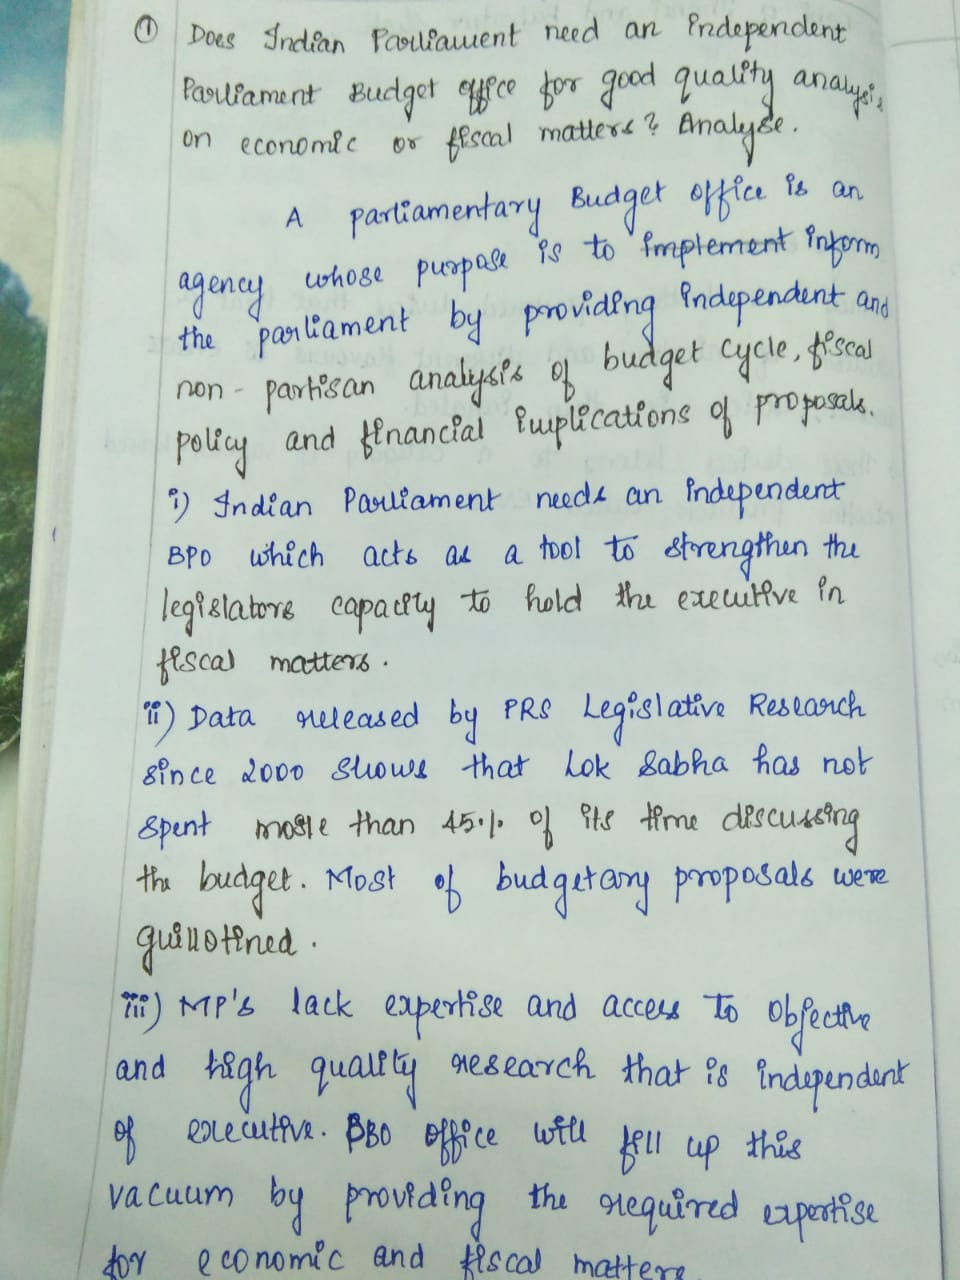 ① Does Indian Parliament need an independent
Parliament Budget office for good quality analysis
on economic or fiscal matters? Analyse.
A parliamentary Budget office is an
agency whose purpose is to implement inform
the parliament by providing independent and
non-partisan analysis of budget cycle, fiscal
policy and financial implications of proposals.
i) Indian Parliament needs an independent
BPO which acts as a tool to strengthen the
legislators capacity to hold the executive in
fiscal matters.
ii) Data released by PRS Legislative Research
since 2000 shows that Lok Sabha has not
spent more than 45% of its time discussing
the budget. Most of budgetary proposals were
guillotined.
iii) MP's lack expertise and access to objective
and high quality research that is independent
of executive. BBO office will fill up this
vacuum by providing the required expertise
for economic and fiscal matters